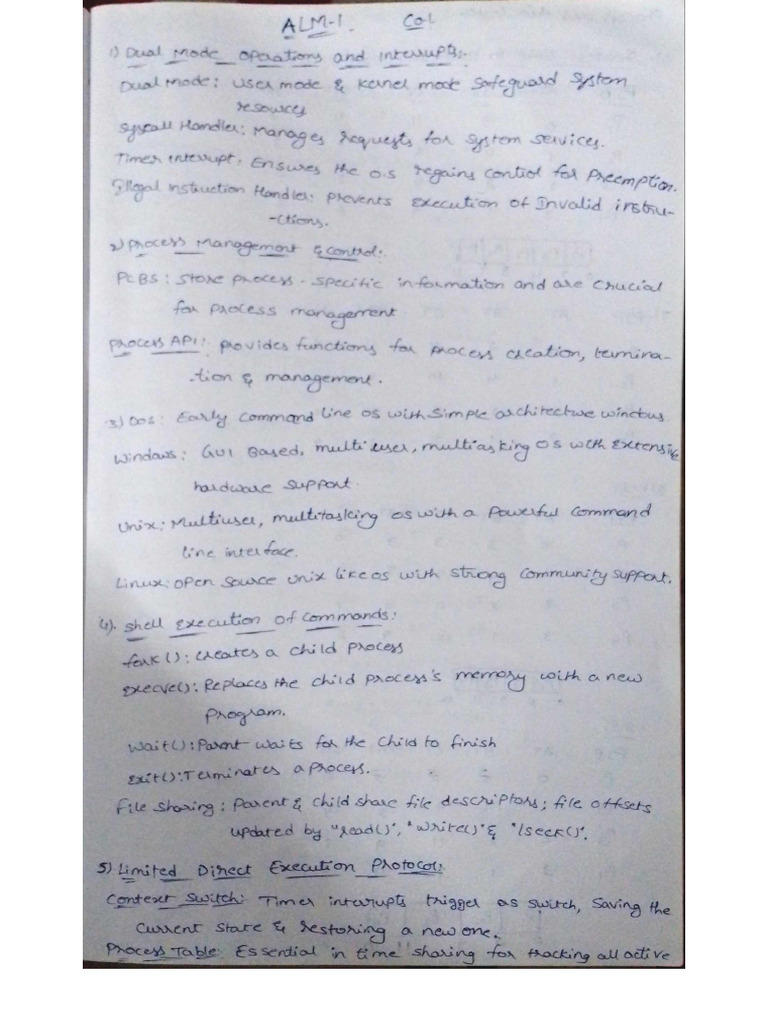 ALM-1. Co1
1) Dual Mode Operations and Interrupts:-
Dual Mode: User mode & Kernel mode Safeguard System
resources
Syscall Handler: Manages requests for System Services.
Timer Interrupt: Ensures the O.S regains control for Preemption.
Illegal Instruction Handler: Prevents Execution of Invalid instru-
-ctions.
2) Process Management & control:
PCBS: Store process-specific information and are crucial
for process management
Process API: provides functions for process creation, termina-
-tion & management.
3) DOS: Early Command line os with simple architecture
Windows: GUI Based, multiuser, multiasking OS with Extensive
hardware support.
Unix: Multiuser, multitasking os with a Powerful Command
line interface.
Linux: Open Source Unix like os with strong Community support.
4). Shell Execution of commands:
fork(): creates a child process
Execve(): Replaces the child process's memory with a new
Program.
Wait(): Parent waits for the child to finish
Exit(): Terminates a process.
File Sharing: Parent & child share file descriptors; file offsets
updated by "read()", "write()" & "lseek()".
5) Limited Direct Execution Protocol:
Context Switch: Timer interrupts trigger as switch, Saving the
Current State & restoring a new one.
Process Table: Essential in time sharing for tracking all active